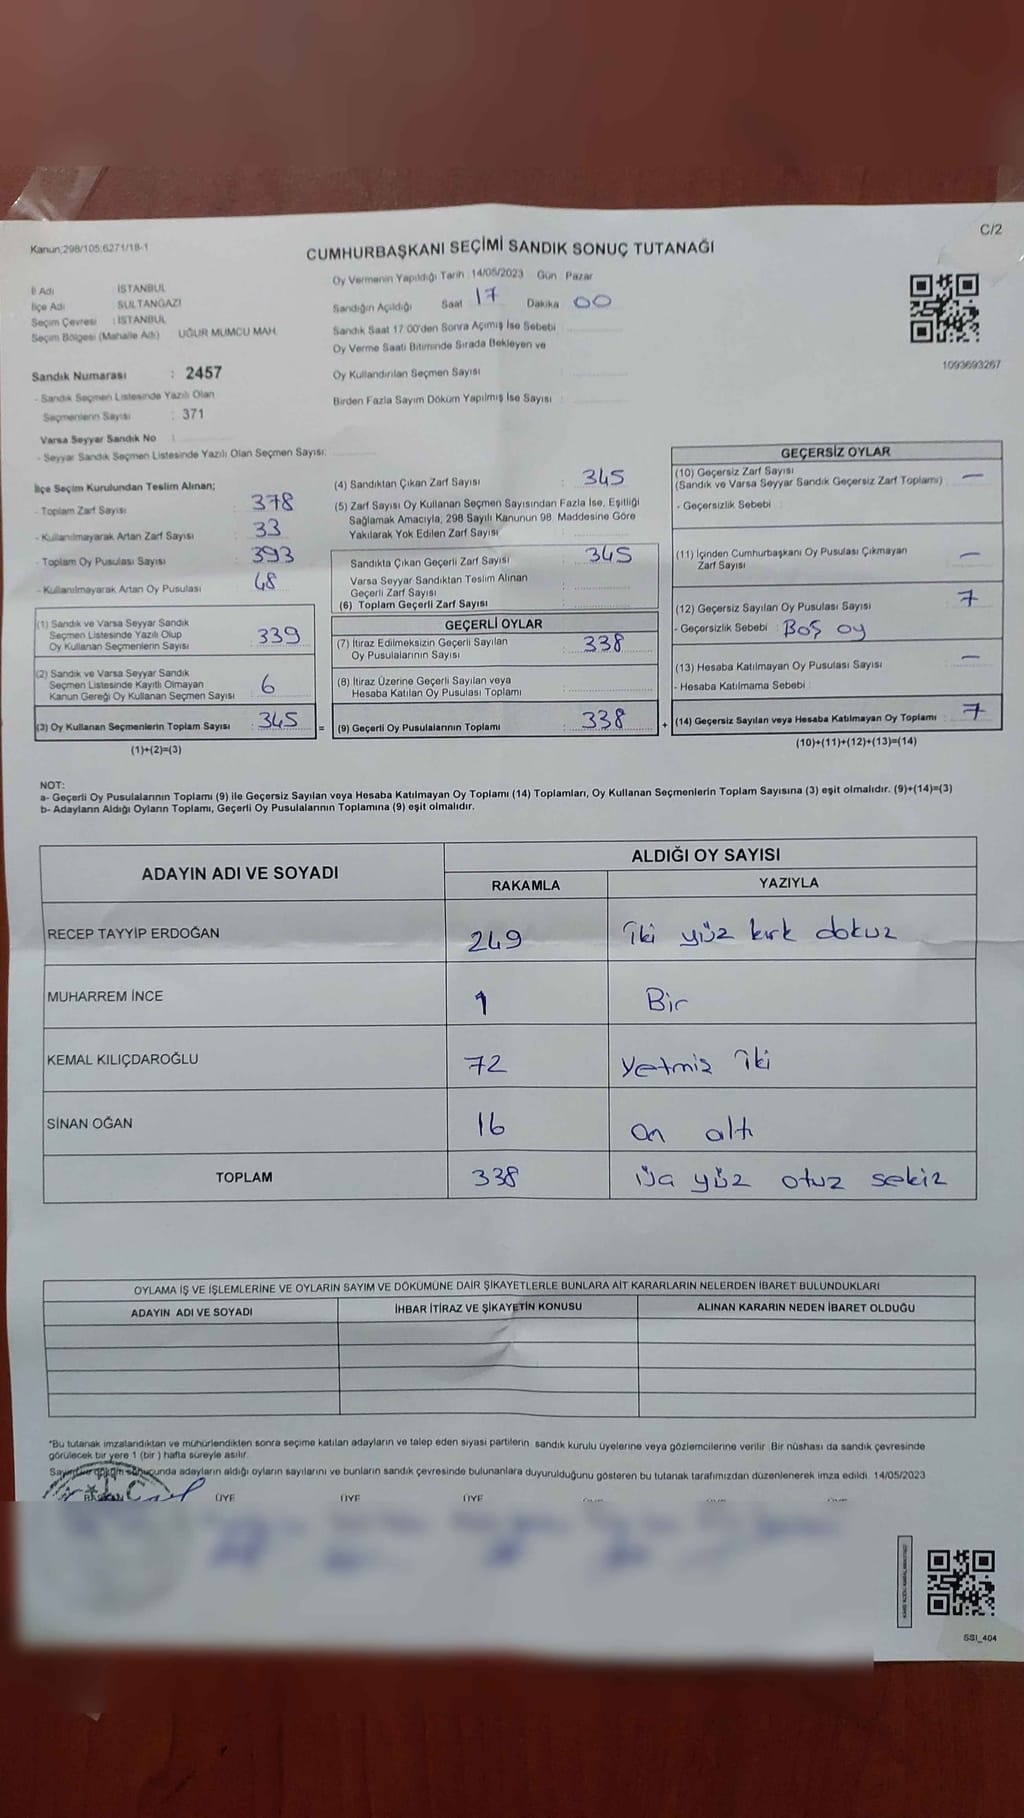 C/2
Kanun:298/105;6271/18-1
CUMHURBAŞKANI SEÇİMİ SANDIK SONUÇ TUTANAĞI
İl Adı : İSTANBUL
İlçe Adı : SULTANGAZİ
Seçim Çevresi : İSTANBUL
Seçim Bölgesi (Mahalle Adı) UĞUR MUMCU MAH.
Sandık Numarası : 2457
- Sandık Seçmen Listesinde Yazılı Olan
Seçmenlerin Sayısı : 371
Varsa Seyyar Sandık No :
- Seyyar Sandık Seçmen Listesinde Yazılı Olan Seçmen Sayısı:
Oy Vermenin Yapıldığı Tarih 14/05/2023 Gün Pazar
Sandığın Açıldığı Saat 17 Dakika 00
Sandık Saat 17:00'den Sonra Açımış İse Sebebi
Oy Verme Saati Bitiminde Sırada Bekleyen ve
Oy Kullandırılan Seçmen Sayısı :
Birden Fazla Sayım Döküm Yapılmış İse Sayısı :
1093693267
İlçe Seçim Kurulundan Teslim Alınan;
- Toplam Zarf Sayısı : 378
- Kullanılmayarak Artan Zarf Sayısı : 33
- Toplam Oy Pusulası Sayısı : 393
- Kullanılmayarak Artan Oy Pusulası : 48
(1) Sandık ve Varsa Seyyar Sandık
Seçmen Listesinde Yazılı Olup
Oy Kullanan Seçmenlerin Sayısı : 339
(2) Sandık ve Varsa Seyyar Sandık
Seçmen Listesinde Kayıtlı Olmayan
Kanun Gereği Oy Kullanan Seçmen Sayısı : 6
(3) Oy Kullanan Seçmenlerin Toplam Sayısı : 345 =
(1)+(2)=(3)
(4) Sandıktan Çıkan Zarf Sayısı : 345
(5) Zarf Sayısı Oy Kullanan Seçmen Sayısından Fazla İse, Eşitliği
Sağlamak Amacıyla, 298 Sayılı Kanunun 98. Maddesine Göre
Yakılarak Yok Edilen Zarf Sayısı :
Sandıkta Çıkan Geçerli Zarf Sayısı : 345
Varsa Seyyar Sandıktan Teslim Alınan
Geçerli Zarf Sayısı :
(6) Toplam Geçerli Zarf Sayısı :
GEÇERLİ OYLAR
(7) İtiraz Edilmeksizin Geçerli Sayılan
Oy Pusulalarının Sayısı : 338
(8) İtiraz Üzerine Geçerli Sayılan veya
Hesaba Katılan Oy Pusulası Toplamı :
(9) Geçerli Oy Pusulalarının Toplamı : 338 +
GEÇERSİZ OYLAR
(10) Geçersiz Zarf Sayısı
(Sandık ve Varsa Seyyar Sandık Geçersiz Zarf Toplamı) : —
- Geçersizlik Sebebi :
(11) İçinden Cumhurbaşkanı Oy Pusulası Çıkmayan
Zarf Sayısı : —
(12) Geçersiz Sayılan Oy Pusulası Sayısı : 7
- Geçersizlik Sebebi : Boş oy
(13) Hesaba Katılmayan Oy Pusulası Sayısı : —
- Hesaba Katılmama Sebebi :
(14) Geçersiz Sayılan veya Hesaba Katılmayan Oy Toplamı : 7
(10)+(11)+(12)+(13)=(14)
NOT:
a- Geçerli Oy Pusulalarının Toplamı (9) ile Geçersiz Sayılan veya Hesaba Katılmayan Oy Toplamı (14) Toplamları, Oy Kullanan Seçmenlerin Toplam Sayısına (3) eşit olmalıdır. (9)+(14)=(3)
b- Adayların Aldığı Oyların Toplamı, Geçerli Oy Pusulalarının Toplamına (9) eşit olmalıdır.
ADAYIN ADI VE SOYADI ALDIĞI OY SAYISI
RAKAMLA YAZIYLA
RECEP TAYYİP ERDOĞAN 249 iki yüz kırk dokuz
MUHARREM İNCE 1 Bir
KEMAL KILIÇDAROĞLU 72 Yetmiş iki
SİNAN OĞAN 16 On altı
TOPLAM 338 üç yüz otuz sekiz
OYLAMA İŞ VE İŞLEMLERİNE VE OYLARIN SAYIM VE DÖKÜMÜNE DAİR ŞİKAYETLERLE BUNLARA AİT KARARLARIN NELERDEN İBARET BULUNDUKLARI
ADAYIN ADI VE SOYADI İHBAR İTİRAZ VE ŞİKAYETİN KONUSU ALINAN KARARIN NEDEN İBARET OLDUĞU
*Bu tutanak imzalandıktan ve mühürlendikten sonra seçime katılan adayların ve talep eden siyasi partilerin sandık kurulu üyelerine veya gözlemcilerine verilir. Bir nüshası da sandık çevresinde
görülecek bir yere 1 (bir ) hafta süreyle asılır.
Sayım ve döküm sonucunda adayların aldığı oyların sayılarını ve bunların sandık çevresinde bulunanlara duyurulduğunu gösteren bu tutanak tarafımızdan düzenlenerek imza edildi. 14/05/2023
BAŞKAN ÜYE ÜYE ÜYE
SSI_404